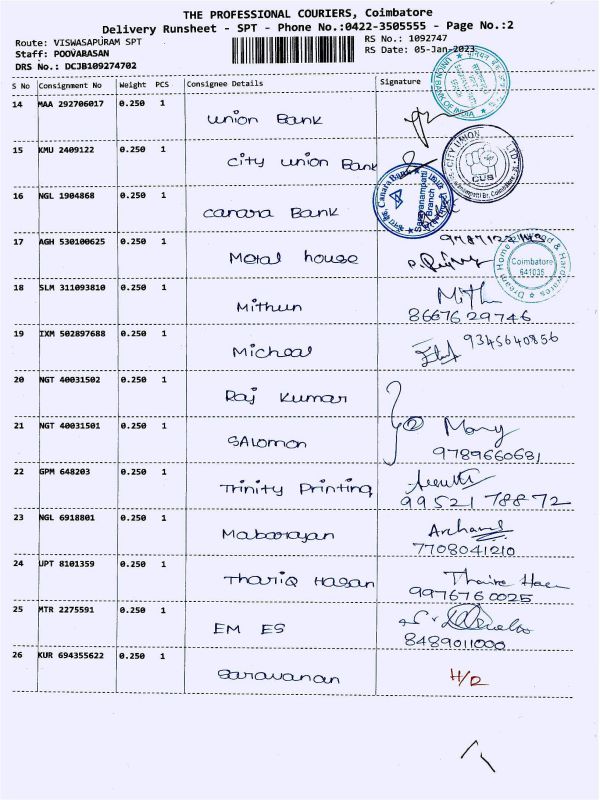 THE PROFESSIONAL COURIERS, Coimbatore
Delivery Runsheet - SPT - Phone No.:0422-3505555 - Page No.:2
Route: VISWASAPURAM SPT RS No.: 1092747
Staff: POOVARASAN RS Date: 05-Jan-2023
DRS No.: DCJB109274702
S No Consignment No Weight PCS Consignee Details Signature
UNION BANK OF INDIA
14 MAA 292706017 0.250 1 Union Bank
15 KMU 2409122 0.250 1 City Union Bank
CITY UNION LTD. CUB
16 NGL 1904868 0.250 1 Canara Bank
Canara Bank Saravanampatti Branch
17 AGH 530100625 0.250 1 Metal house
Dream Home & Hardwares Coimbatore 641035
18 SLM 311093810 0.250 1 Mithun Mith
8667629746
19 IXM 502897688 0.250 1 Micheal 9345640856
20 NGT 40031502 0.250 1 Raj Kumar
21 NGT 40031501 0.250 1 SAlomon Mary
9789660681
22 GPM 648203 0.250 1 Trinity Printing
99521 78872
23 NGL 6918801 0.250 1 Archana
7708041210
24 UPT 8101359 0.250 1 Thariq Hasan
9976760025
25 MTR 2275591 0.250 1 EM ES
8489011000
26 KUR 694355622 0.250 1 Saravanan H/O